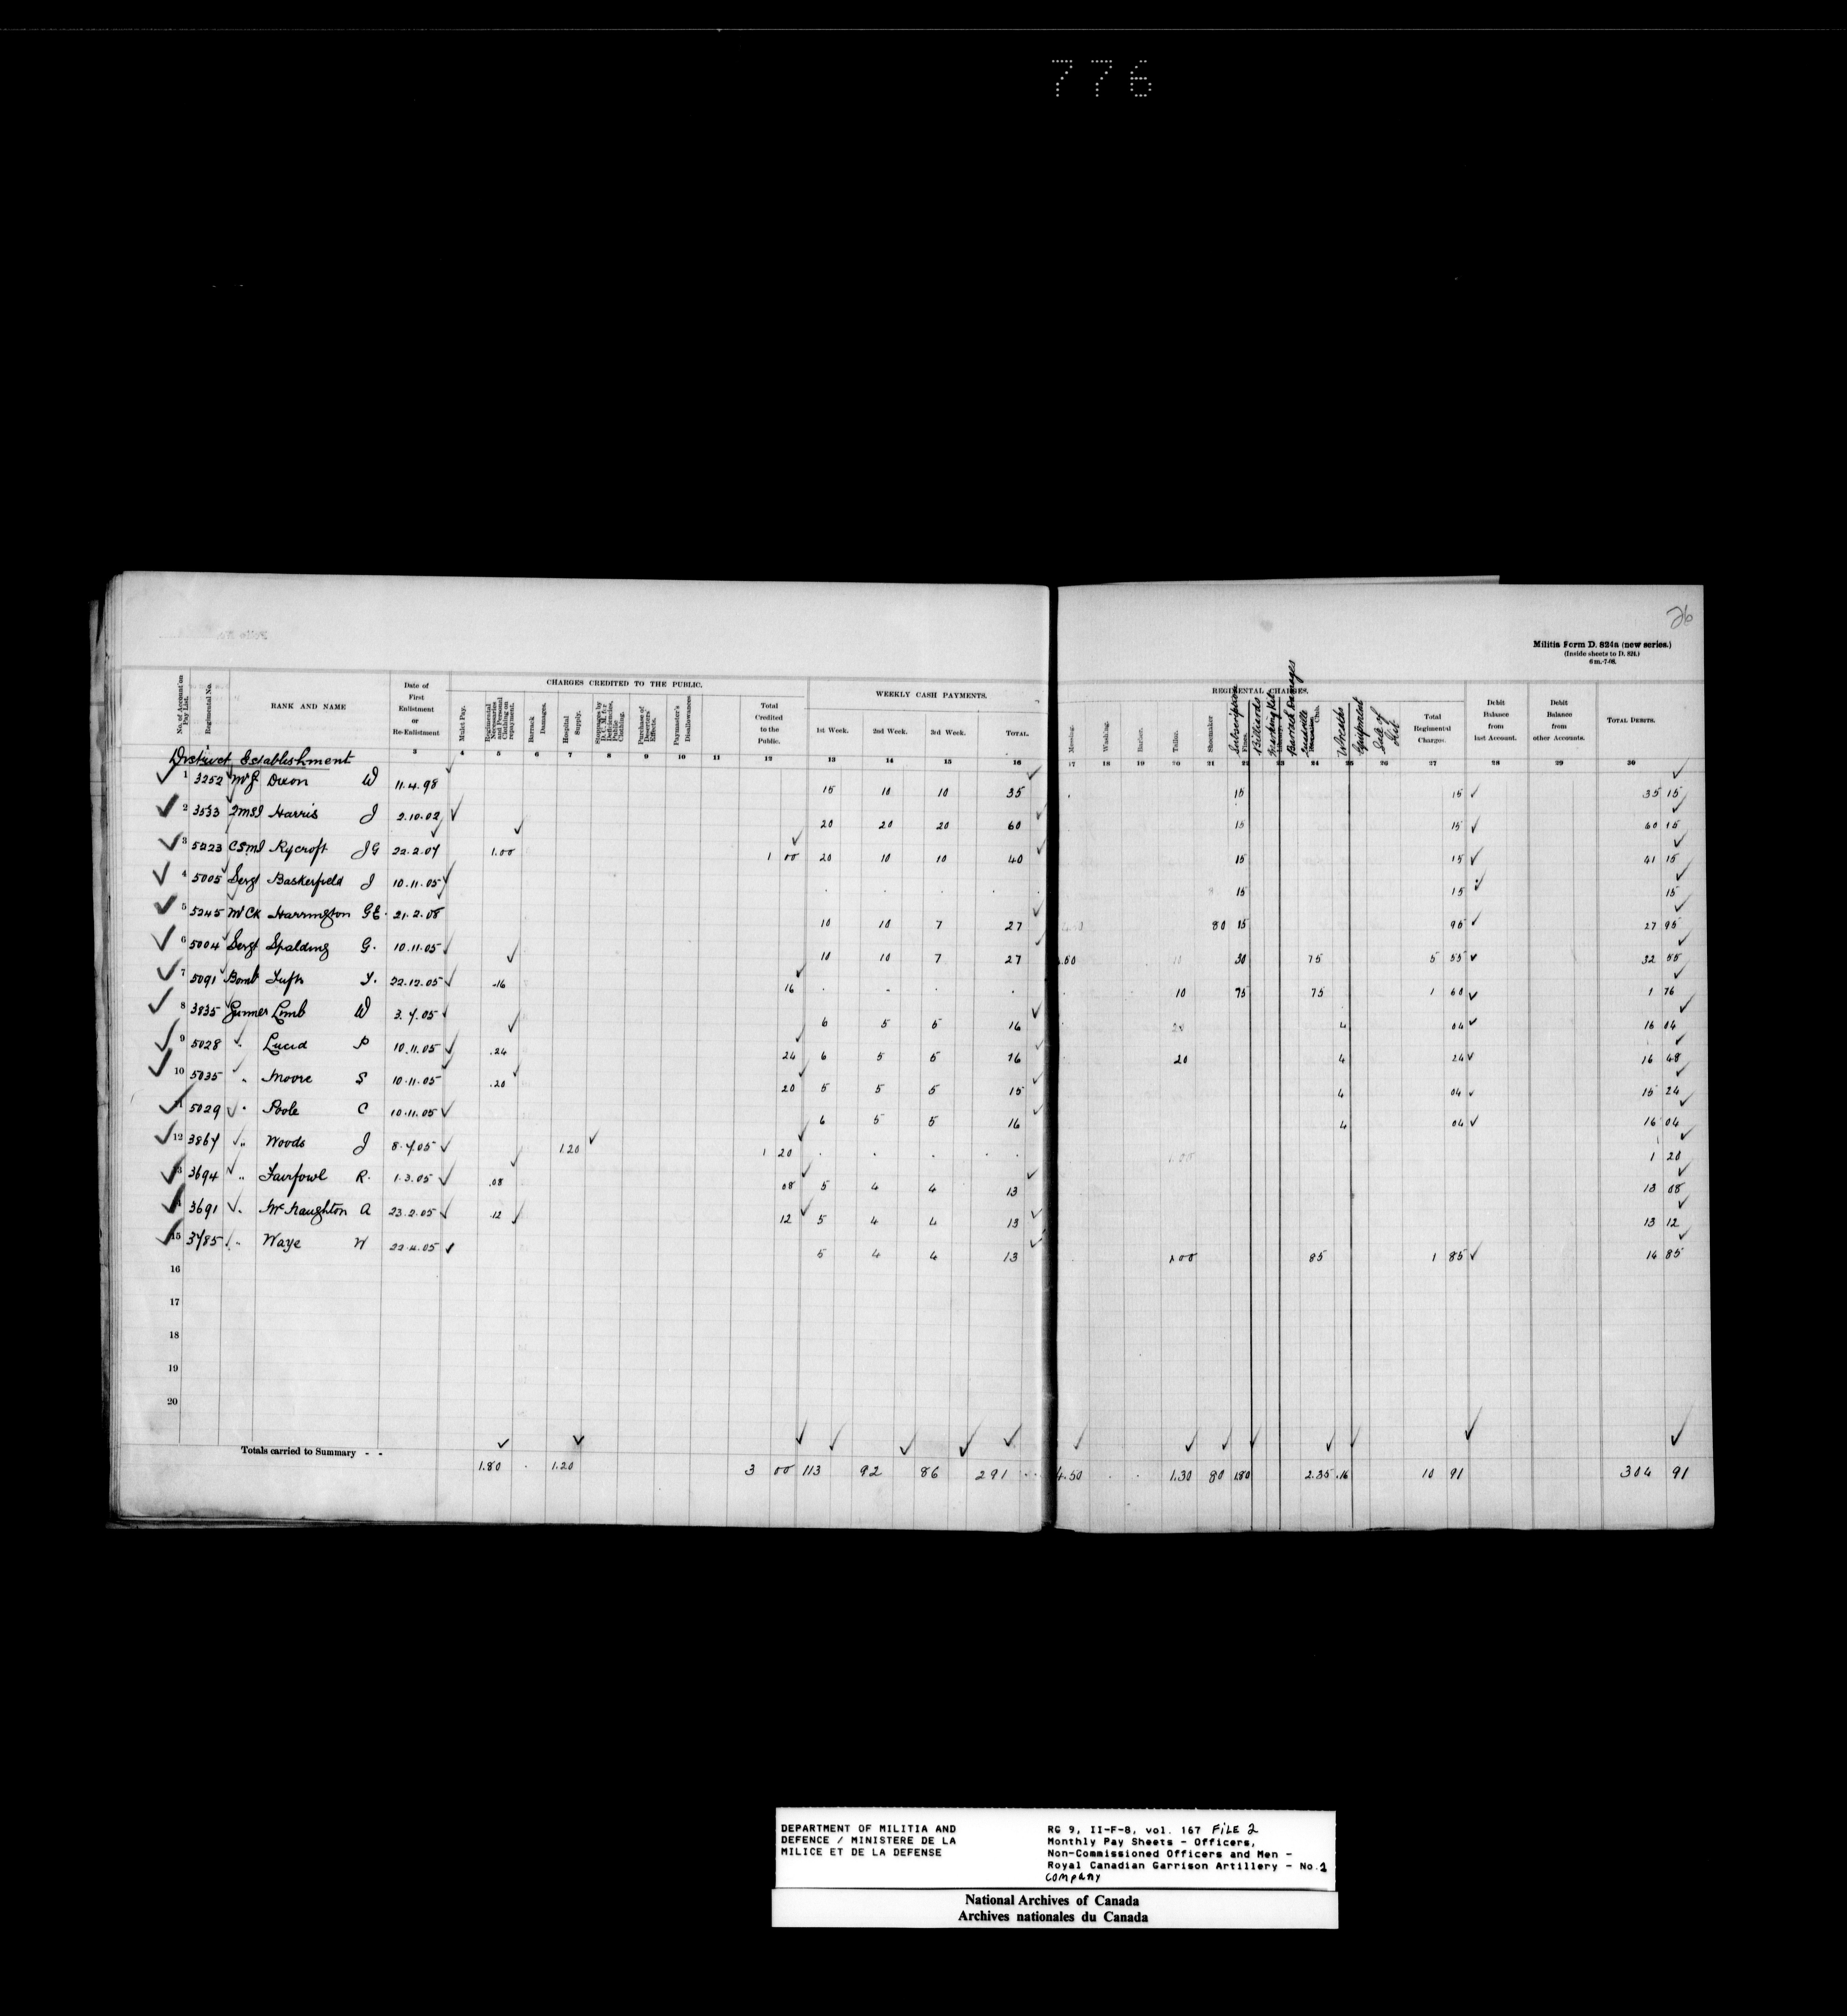 776
26
Militia Form D. 824a (new series.)
(Inside sheets to D. 824.)
6 m.-7-08.
No. of Account on Pay List. Regimental No. RANK AND NAME Date of First Enlistment or Re-Enlistment CHARGES CREDITED TO THE PUBLIC. WEEKLY CASH PAYMENTS. REGIMENTAL CHARGES. Debit Balance from last Account. Debit Balance from other Accounts. TOTAL DEBITS.
Mulct Pay. Regimental Necessaries and Personal Clothing on repayment. Barrack Damages. Hospital Supply. Stoppages by D.C.M. for Deficiencies, Public Clothing. Purchase of Deserters' Effects. Paymaster's Disallowances Total Credited to the Public. 1st Week. 2nd Week. 3rd Week. TOTAL. Messing. Washing. Barber. Tailor. Shoemaker Subscription Billiards Marking Kits Barrack Damages Club. Wreaths Equipment Sale of Kit Total Regimental Charges.
1 3 4 5 6 7 8 9 10 11 12 13 14 15 16 17 18 19 20 21 22 23 24 25 26 27 28 29 30
District Establishment
1 3252 Mr G Dixon W 11.4.98 15 10 10 35 15 15 35 15
2 3533 QMSI Harris J 2.10.02 20 20 20 60 15 15 60 15
3 5223 CSMI Rycroft J G 22.2.07 1.00 1 00 20 10 10 40 15 15 41 15
4 5005 Sergt Baskerfield J 10.11.05 15 15 15
5 5245 Mr Ck Harrington G E. 21.2.08 10 10 7 27 80 15 95 27 95
6 5004 Sergt Spalding G. 10.11.05 10 10 7 27 .50 10 30 75 5 55 32 55
7 5091 Bomb Tufts 22.12.05 .16 16 10 75 75 1 60 1 76
8 3835 Gunner Lomb W 3.7.05 6 5 5 16 4 04 16 04
9 5028 " Lucid P 10.11.05 .24 24 6 5 5 16 20 4 24 16 48
10 5035 " Moore S 10.11.05 .20 20 5 5 5 15 4 04 15 24
11 5029 " Poole C 10.11.05 6 5 5 16 4 04 16 04
12 3867 " Woods J 8.7.05 1.20 1 20 1 20
13 3694 " Fairfowl R. 1.3.05 .08 08 5 4 4 13 13 08
14 3691 " McNaughton A 23.2.05 .12 12 5 4 4 13 13 12
15 3785 " Waye W 22.4.05 5 4 4 13 1.00 85 1 85 14 85
16
17
18
19
20
Totals carried to Summary - - 1.80 1.20 3 00 113 92 86 291 4.50 1.30 80 1.80 2.35 .16 10 91 304 91
DEPARTMENT OF MILITIA AND
DEFENCE / MINISTERE DE LA
MILICE ET DE LA DEFENSE
RG 9, II-F-8, vol. 167 FiLE 2
Monthly Pay Sheets - Officers,
Non-Commissioned Officers and Men -
Royal Canadian Garrison Artillery - No.1
company
National Archives of Canada
Archives nationales du Canada